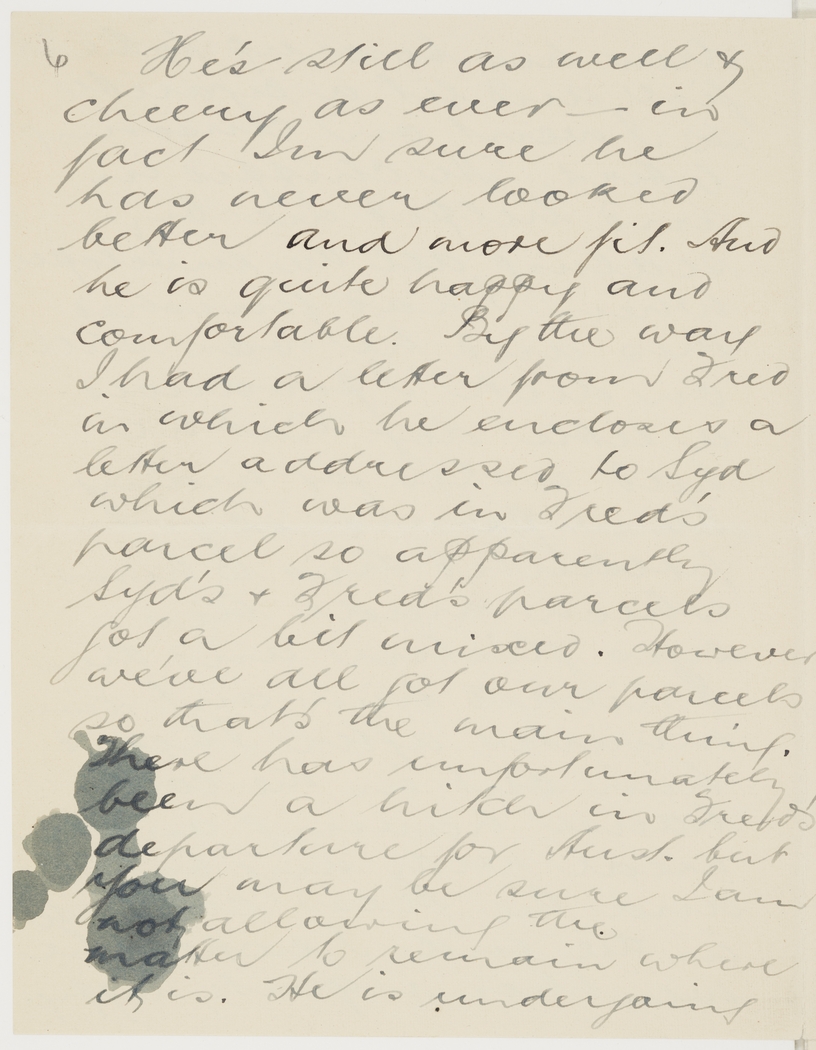 6 He's still as well &
cheery as ever — in
fact I'm sure he
has never looked
better and more fit. And
he is quite happy and
comfortable. By the way
I had a letter from Fred
in which he encloses a
letter addressed to Syd
which was in Fred's
parcel so apparently
Syd's & Fred's parcels
got a bit mixed. However
we've all got our parcels
so that's the main thing.
There has unfortunately
been a hitch in Fred's
departure for Aust. but
you may be sure I am
not allowing the
matter to remain where
it is. He is undergoing